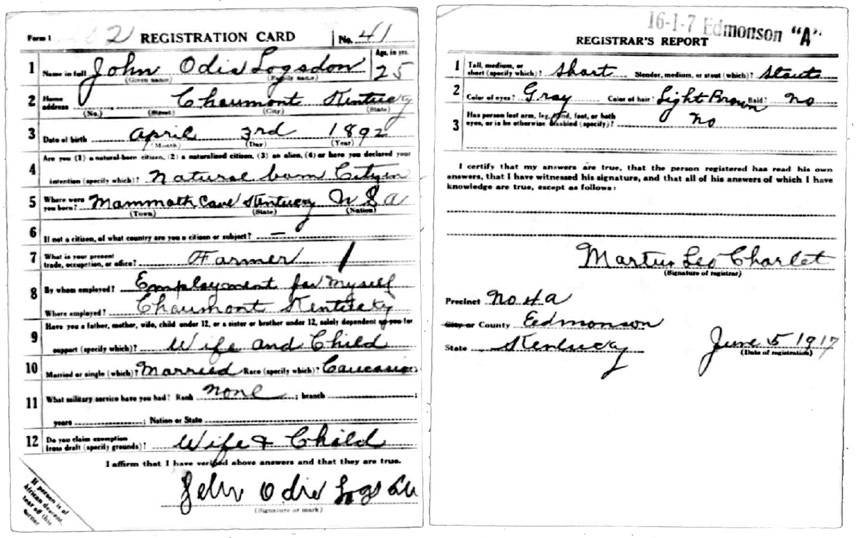 Form 1 2 REGISTRATION CARD No. 41
1 Name in full John Odis Logsdon Age, in yrs. 25
(Given name) (Family name)
2 Home address Chaumont Kentucky
(No.) (Street) (City) (State)
3 Date of birth April 3rd 1892
(Month) (Day) (Year)
4 Are you (1) a natural-born citizen, (2) a naturalized citizen, (3) an alien, (4) or have you declared your
intention (specify which)? Natural born Citizen
5 Where were you born? Mammoth Cave Kentucky U S A
(Town) (State) (Nation)
6 If not a citizen, of what country are you a citizen or subject? —
7 What is your present trade, occupation, or office? Farmer
8 By whom employed? Employment for Myself
Where employed? Chaumont Kentucky
9 Have you a father, mother, wife, child under 12, or a sister or brother under 12, solely dependent on you for
support (specify which)? Wife and Child
10 Married or single (which)? Married Race (specify which)? Caucasian
11 What military service have you had? Rank none ; branch ;
years ; Nation or State
12 Do you claim exemption from draft (specify grounds)? Wife & Child
I affirm that I have verified above answers and that they are true.
John Odis
(Signature or mark)
If person is of African descent, tear off this corner
16-1-7 Edmonson "A"
REGISTRAR'S REPORT
1 Tall, medium, or short (specify which)? Short Slender, medium, or stout (which)? Stout
2 Color of eyes? Gray Color of hair? Light Brown Bald? No
3 Has person lost arm, leg, hand, foot, or both eyes, or is he otherwise disabled (specify)? No
I certify that my answers are true, that the person registered has read his own
answers, that I have witnessed his signature, and that all of his answers of which I have
knowledge are true, except as follows:
Martin Leo Charlet
(Signature of registrar)
Precinct No 4 a
City or County Edmonson
State Kentucky June 5 1917
(Date of registration)